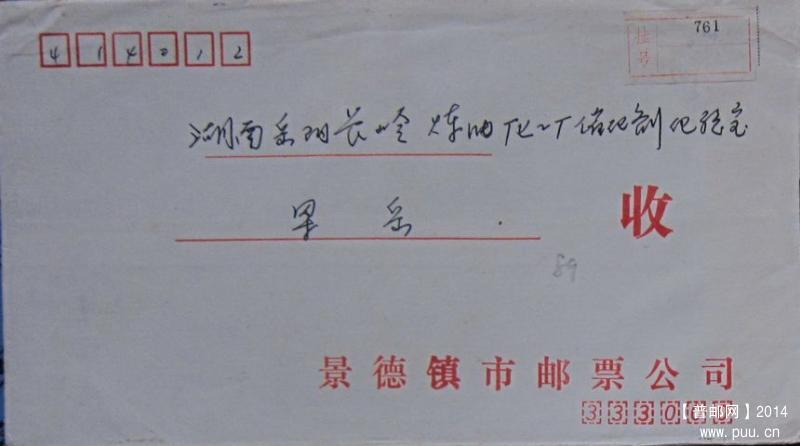 414012
挂号 761
湖南岳阳长岭炼油化工厂催化剂化验室
岳
收
89
景德镇市邮票公司
3330
【普邮网】2014
www.puu.cn